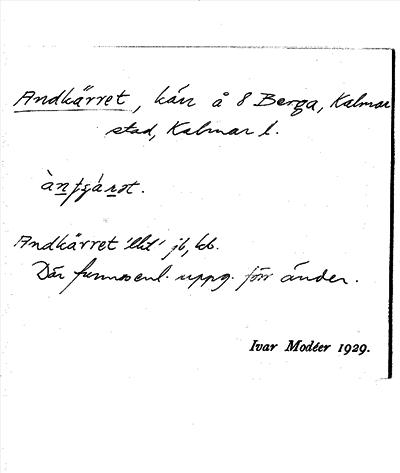 Andkärret, kärr å 8 Berga, Kalmar
stad, Kalmar l.
Andkärret 'llt' jb, kb.
Där funnos enl. uppg. förr änder.
Ivar Modéer 1929.